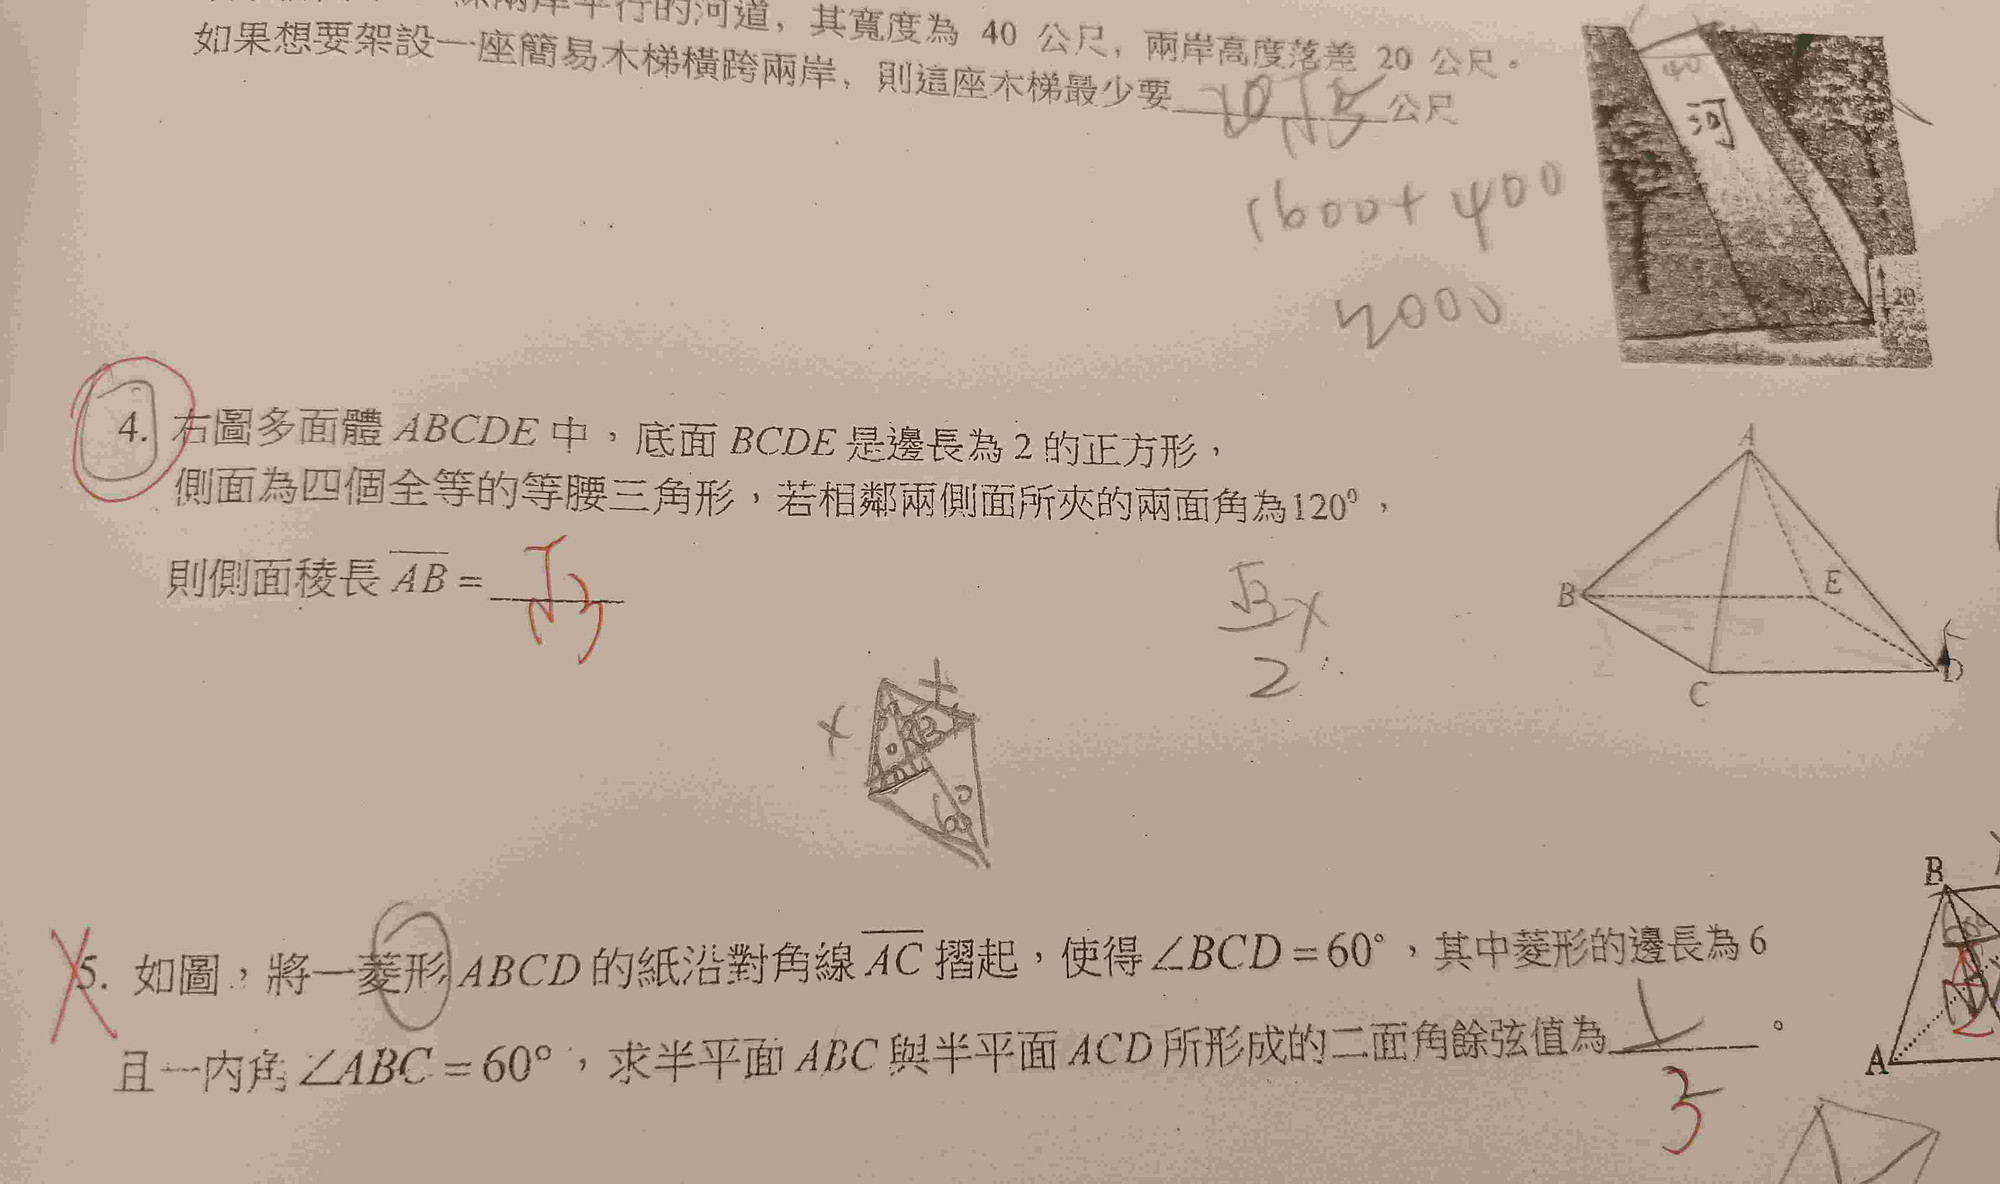 線兩岸平行的河道，其寬度為 40 公尺，兩岸高度落差 20 公尺。
如果想要架設一座簡易木梯橫跨兩岸，則這座木梯最少要 20√5 公尺
40
河
20
1600+400
2000
4. 右圖多面體 ABCDE 中，底面 BCDE 是邊長為 2 的正方形，
側面為四個全等的等腰三角形，若相鄰兩側面所夾的兩面角為120°，
則側面稜長 AB = √3
√3x
2
A
B
E
C
D
x
x
60°
5. 如圖，將一菱形 ABCD 的紙沿對角線 AC 摺起，使得∠BCD = 60°，其中菱形的邊長為 6
且一內角∠ABC = 60°，求半平面 ABC 與半平面 ACD 所形成的二面角餘弦值為 1 。
3
B
A